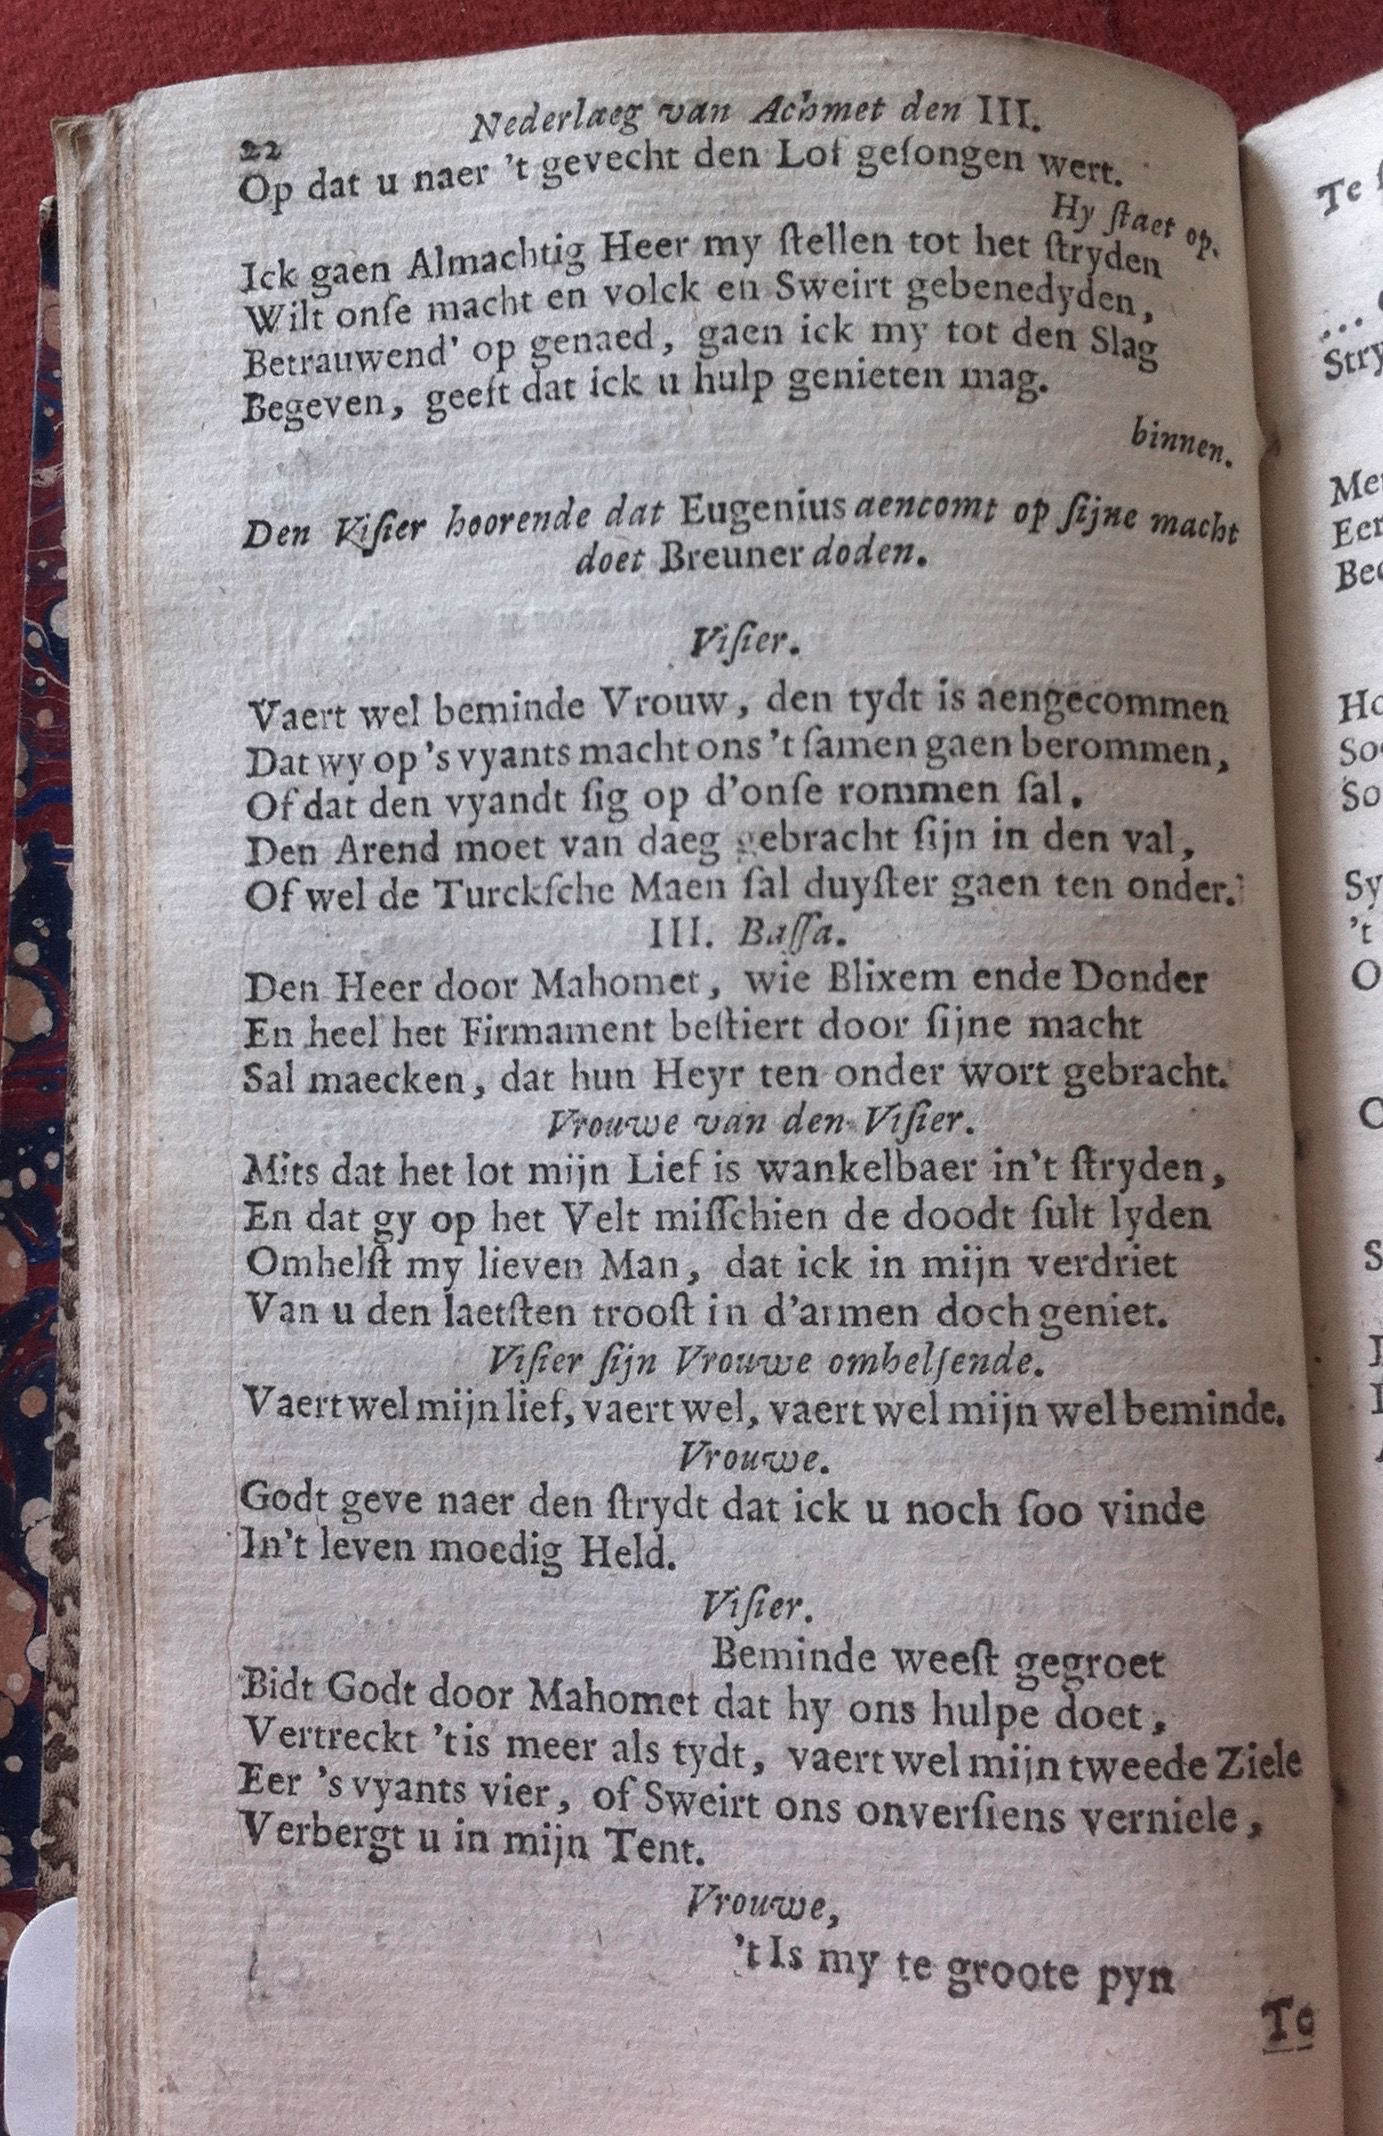 22 Nederlaeg van Achmet den III.
Op dat u naer 't gevecht den Lof geſongen wert.
Hy ſtaet op.
Ick gaen Almachtig Heer my ſtellen tot het ſtryden
Wilt onſe macht en volck en Sweirt gebenedyden,
Betrauwend' op genaed, gaen ick my tot den Slag
Begeven, geeft dat ick u hulp genieten mag.
binnen.
Den Viſier hoorende dat Eugenius aencomt op ſijne macht
doet Breuner doden.
Viſier.
Vaert wel beminde Vrouw, den tydt is aengecommen
Dat wy op 's vyants macht ons 't ſamen gaen berommen,
Of dat den vyandt ſig op d'onſe rommen ſal.
Den Arend moet van daeg gebracht ſijn in den val,
Of wel de Turckſche Maen ſal duyſter gaen ten onder.
III. Baſſa.
Den Heer door Mahomet, wie Blixem ende Donder
En heel het Firmament beſtiert door ſijne macht
Sal maecken, dat hun Heyr ten onder wort gebracht.
Vrouwe van den Viſier.
Mits dat het lot mijn Lief is wankelbaer in't ſtryden,
En dat gy op het Velt miſſchien de doodt ſult lyden
Omhelſt my lieven Man, dat ick in mijn verdriet
Van u den laetſten trooſt in d'armen doch geniet.
Viſier ſijn Vrouwe omhelſende.
Vaert wel mijn lief, vaert wel, vaert wel mijn wel beminde.
Vrouwe.
Godt geve naer den ſtrydt dat ick u noch ſoo vinde
In't leven moedig Held.
Viſier.
Beminde weeſt gegroet
Bidt Godt door Mahomet dat hy ons hulpe doet,
Vertreckt 't is meer als tydt, vaert wel mijn tweede Ziele
Eer 's vyants vier, of Sweirt ons onverſiens verniele,
Verbergt u in mijn Tent.
Vrouwe,
't Is my te groote pyn
To